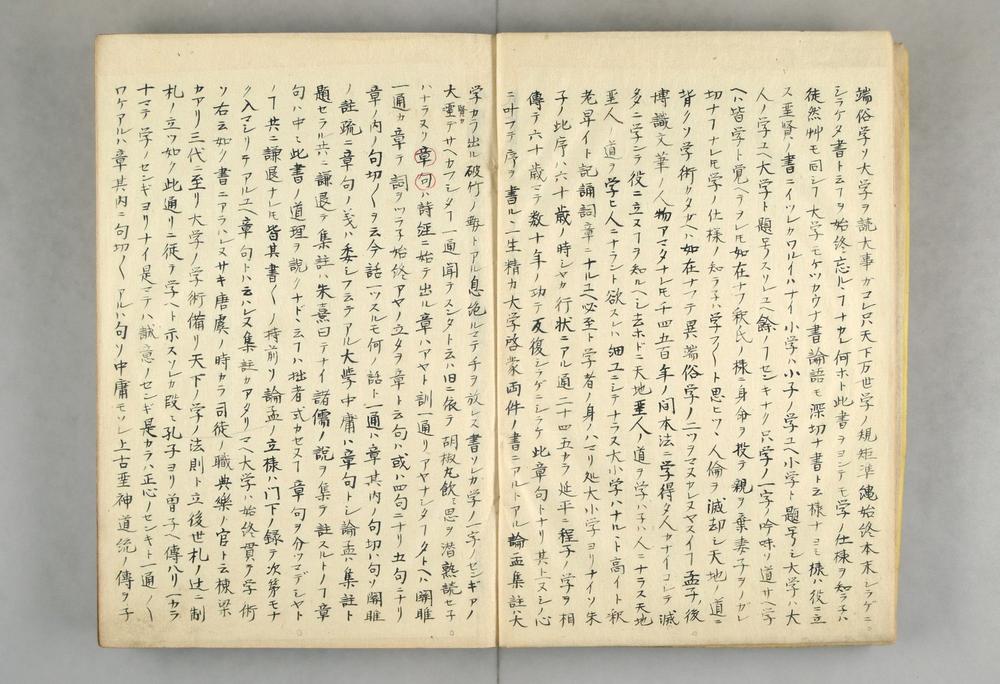 端俗学ソ大学ヲ読大事ガコレ只天下万世学ノ規矩準縄始終本末シラゲニ
シラケタ書ト云フヲ始終忘ルヿナカレ何ホト此書ヲヨンデモ学ノ仕様ヲ知ラ子ハ
徒然艸モ同シヿ大学モケツカウナ書論語モ深切ナ書ト云様ナヨミ様ハ役ニ立
ス聖賢ノ書ニイツレカワルイハナイ小学ハ小子ノ学ユヘ小学ト題号シ大学ハ大
人ノ学ユヘ大学ト題号スソレユヘ餘ノヿセンキナク只学ノ一字ノ吟味ソ道サヘ学
ヘハ皆学ト覚ヘラフレ𪜈如在ナフ釈氏ノ様ニ身命ヲ投テ親ヲ棄妻子ヲノガレ
切ナフナレ𪜈学ノ仕様ノ知ラ子ハ学フ〱ト思ヒツヽ人倫ヲ滅却シ天地ノ道ニ
背クソ学術カタガヘハ如在ナフテ異端俗学ノ二ツヲマヌカレヌヤスイヿ孟子後
博識文筆ノ人物アマタナレ𪜈千四五百年ノ間本法ニ学得タ人カナイコレテ滅
多ニ学ンテハ役ニ立ヌヿヲ知ルヘシ去ホドニ天地聖人ノ道ヲ学ハ子ハ人ニナラス天地
聖人ノ道ヲ学ヒ人ニナラント欲スレハ細工ニシテナラス大小学ハナルト高イト釈
老卑イト記誦詞章ニナルユヘ必至ト学者ノ身ノハマリ処大小学ヨリナイソ朱
子ノ此序ハ六十歳ノ時シヤカ行状ニアル通二十四五カラ延平ニ程子ノ学ヲ相
傳テ六十歳マテ数十年ノ功テ反復シラゲニシラケ此章句トナリ其上ヌシノ心
ニ叶フテ序ヲ書ル一生精力大学啓蒙両件ノ書ニアルトアル論孟集註ハ大
学カラ出ル破竹ノ勢トアル息絶ルマテ手ヲ放レヌ書ソレカ学ノ一字ノセンギアノ
大重デサヘカフシタヿ一通聞テスンタト云ハ旧ニ依テ胡椒丸飲ミ思ヲ潜熟読セ子
ハナラヌソ章句ハ詩経ニ始テ出ル章ハアヤト訓一通リアヤナシタヿタトヘハ関雎
一通カ章テ詞ヲツラ子始終アヤノ立タヲ章ト云句ハ或ハ四句ニナリ五句ニナリ
章ノ内ノ句切〱ヲ云今話一ツスルモ何ノ話ト一通ハ章其内ノ句切ハ句ソ関雎
ノ註疏ニ章句ノ義ハ委シフシテアル大学中庸ハ章句トシ論孟ハ集註ト
題セラル共ニ謙退テ集註ハ朱熹曰テナイ諸儒ノ説ヲ集テ註スルトノヿ章
句ハ中ニ此書ノ道理ヲ説クナドヽ云ヿハ拙者式カセヌヿ章句ヲ分ツマデシヤト
ノヿ共ニ謙退ナレ𪜈皆其書〱ノ持前ソ論孟ノ立様ハ門下ノ録テ次第モナ
ク入マシリテアルユヘ章句トハ云ハレヌ集註カアタリマヘ大学ハ始終貫ク学術
ソ右云如ク書ニアラハレヌサキ唐虞ノ時カラ司徒ノ職典樂ノ官ト云棟梁
カアリ三代ニ至リ大学ノ学術備リ天下ノ学ノ法則ト立後世札ノ辻ニ制
札ノ立ツ如ク此通リニ徒テ学ヘト示スソレカ段ミ孔子ヨリ曽子ヘ傳ハリ一カラ
十マテ学ノセンギヨリナイ是マテハ誠意ノセンギ是カラハ正心ノセンキト一通ノ〱
ワケアルハ章其内ニ句切〱アルハ句ソ中庸モソレ上古聖神道統ノ傳ヲ子